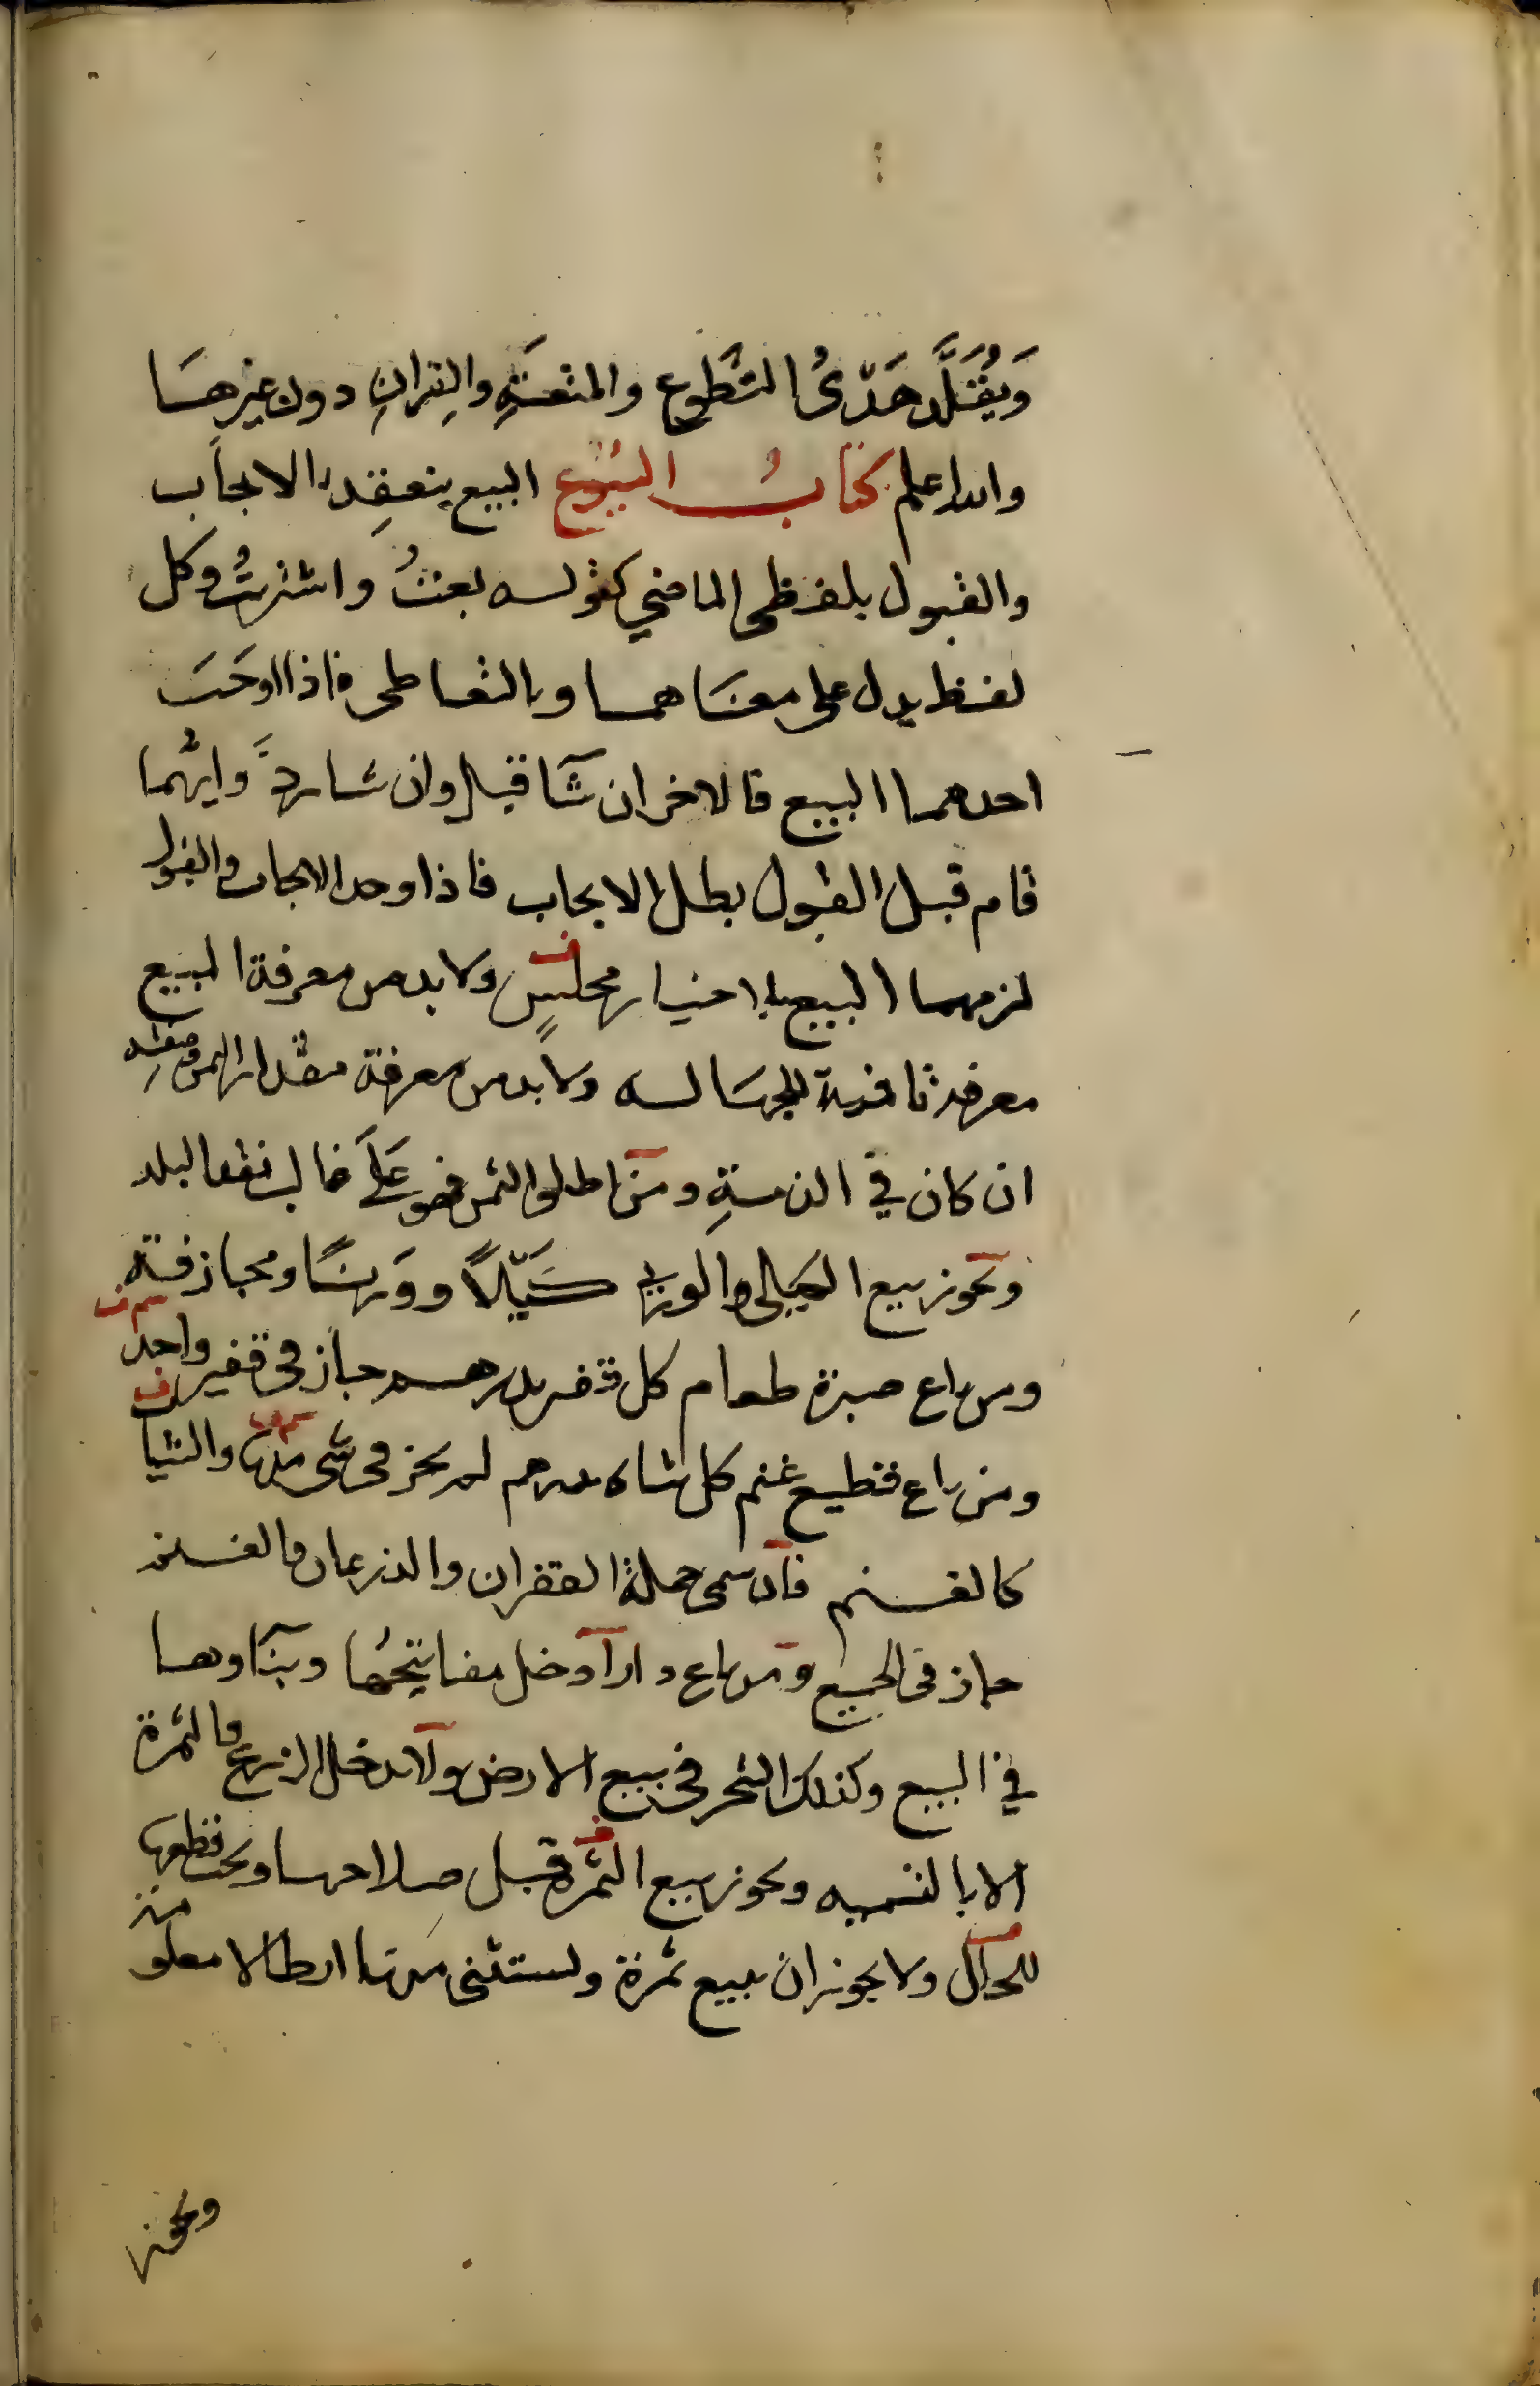 وَيُقَلَّد هَدْىُ التَّطَوع والمتعَةِ والقِرانِ دون غيرهَا
والله اعلم كتابُ البُيُوع البيع ينعقِد بالايجاب
والقبول بلفظى الماضي كقوله بعتُ واشتريتُ وكل
لفظ يدل على معنَاهما وبالتعاطى فاذا اوجَبَ
احدهما البيع فالاخر ان شَآ قبل وان شا ردَّ وايّهُما
قام قبل القبول بطل الايجاب فاذا وجد الايجاب والقبول
لزمهما البيع بلا خيار مجلسٍ ولا بد من معرفة المبيع
معرفة نافية للجهَالة ولا بد من معرفة مقدار الثمن وصفته
ان كان في الذمةِ ومن اطلق الثمن فهو عَلَى غالب نقد البلد
ويجوز بيع الكيلى والوزنى كَيْلاً ووَزنًا ومجازفة
ومن باع صبرة طعام كل قفيز بدرهم جاز فى قفيز واحد
ومن باع قطيع غنم كل شاه بدرهم لم يجز فى شى منها والثيا
كالغنم فان سمى جملة القفزان والذرعان والغنم
جاز فى الجميع ومن باع دارا دخل مفاتيحُها وبنَآوها
في البيع وكذلك الشجر فى بيع الارض ولا يدخل الزرع والثمرة
الا بالتسميه ويجوز بيع الثمرة قبل صلاحها ويجب قطعها
للحال ولا يجوز ان يبيع ثمرة ويستثنى منها ارطالا معلومة
ويجوز